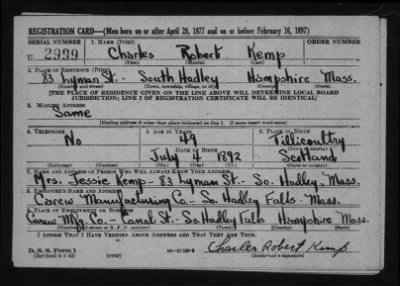 REGISTRATION CARD—(Men born on or after April 28, 1877 and on or before February 16, 1897)
SERIAL NUMBER 1. NAME (Print)
U 2999 Charles Robert Kemp
(First) (Middle) (Last)
2. PLACE OF RESIDENCE (Print)
83 Lyman St. - South Hadley Hampshire Mass.
(Number and street) (Town, township, village, or city) (County) (State)
[THE PLACE OF RESIDENCE GIVEN ON THE LINE ABOVE WILL DETERMINE LOCAL BOARD
JURISDICTION; LINE 2 OF REGISTRATION CERTIFICATE WILL BE IDENTICAL]
3. MAILING ADDRESS
Same
[Mailing address if other than place indicated on line 2. If same insert word same]
4. TELEPHONE 5. AGE IN YEARS 6. PLACE OF BIRTH
No 49 Tillicoultry
DATE OF BIRTH (Town or county)
July 4 1892 Scotland
(Exchange) (Number) (Mo.) (Day) (Yr.) (State or country)
7. NAME AND ADDRESS OF PERSON WHO WILL ALWAYS KNOW YOUR ADDRESS
Mrs. Jessie Kemp - 83 Lyman St. - So. Hadley - Mass.
8. EMPLOYER'S NAME AND ADDRESS
Carew Manufacturing Co - So. Hadley Falls - Mass.
9. PLACE OF EMPLOYMENT OR BUSINESS
Carew Mfg. Co - Canal St. - So. Hadley Falls Hampshire Mass.
(Number and street or R. F. D. number) (Town) (County) (State)
I AFFIRM THAT I HAVE VERIFIED ABOVE ANSWERS AND THAT THEY ARE TRUE.
D. S. S. Form 1 Charles Robert Kemp
(Revised 4-1-42) (over) (Registrant's signature)